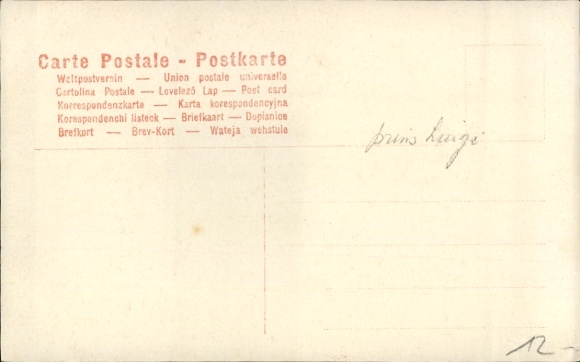 Carte Postale - Postkarte
Weltpostverein — Union postale universelle
Cartolina Postale — Levelező Lap — Post card
Korrespondenzkarte — Karta korespondencyjna
Korespondenchi listeck — Briefkaart — Dopisnice
Brefkort — Brev-Kort — Wateja wehstule
prins Luigi
12 —